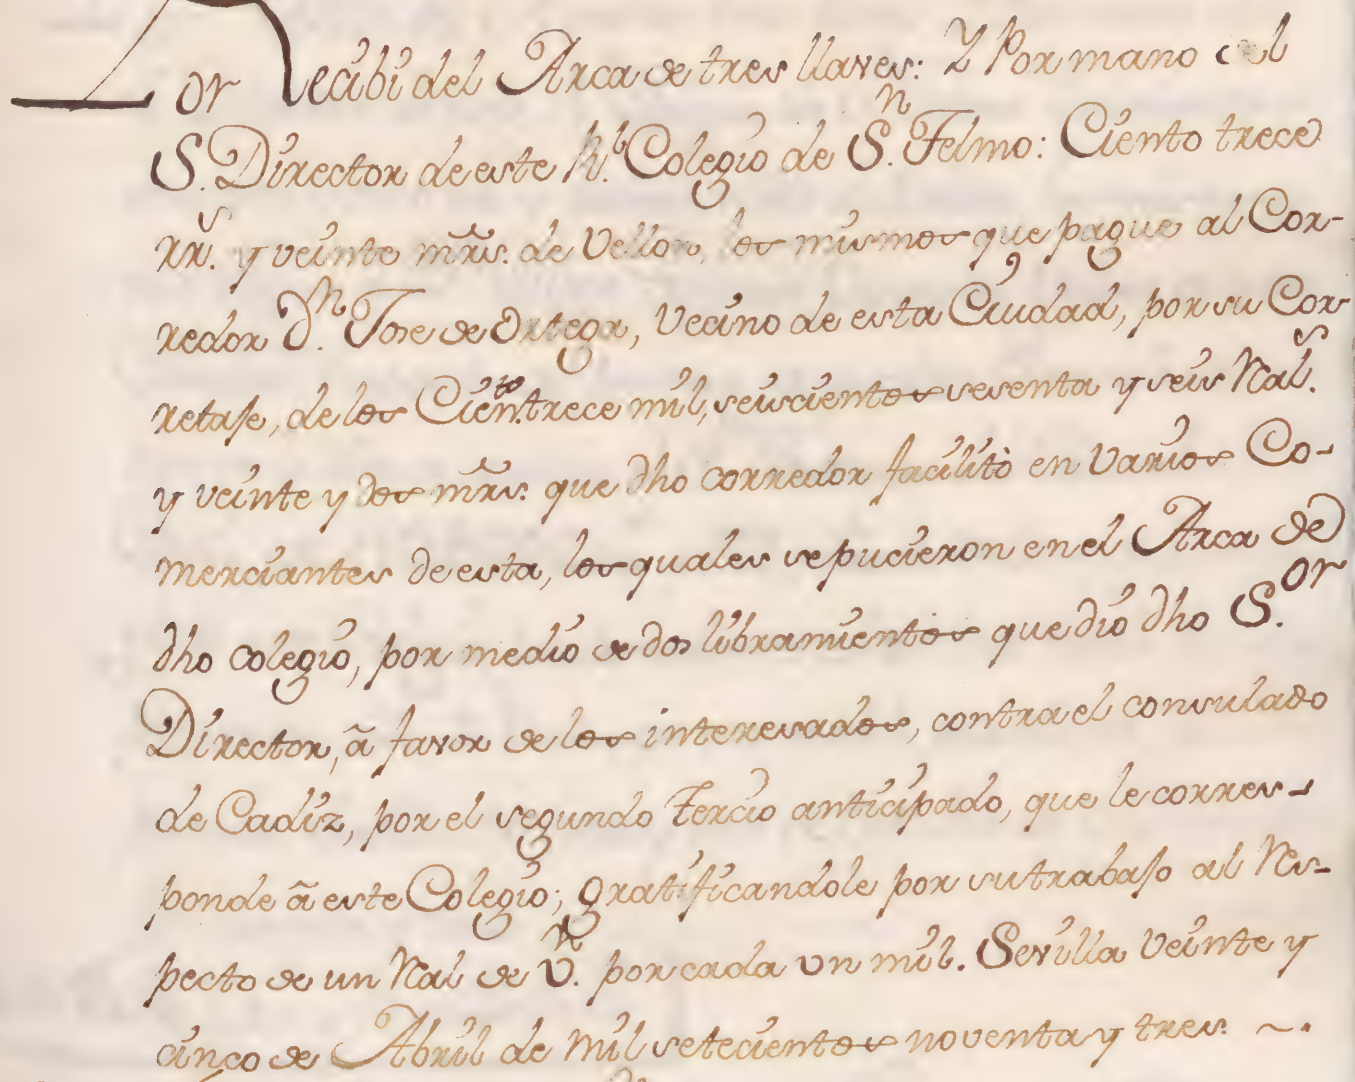 Recibi del Arca de tres llaves: Y Por mano del
S.or Director de este Rl. Colegio de S.n Telmo: Ciento trece
rr.s y veinte mrs. de Vellon, los mismos que pague al Cor-
redor D.n Jose de Ortega, Vecino de esta Ciudad, por su Cor-
retaje, de los Cien.to trece mil, seiscientos sesenta y seis Real.s
y veinte y dos mrs. que dho corredor facilitò en Varios Co-
merciantes de esta, los quales se pucieron en el Arca de
dho colegio, por medio de dos libramientos que diò dho S.or
Director, ã favor de los interesados, contra el consulado
de Cadiz, por el segundo Tercio anticipado, que le corres-
ponde ã este Colegio; gratificandole por su trabajo al Res-
pecto de un Real de V.n por cada un mil. Sevilla Veinte y
cinco de Abril de mil setecientos noventa y tres. ~.